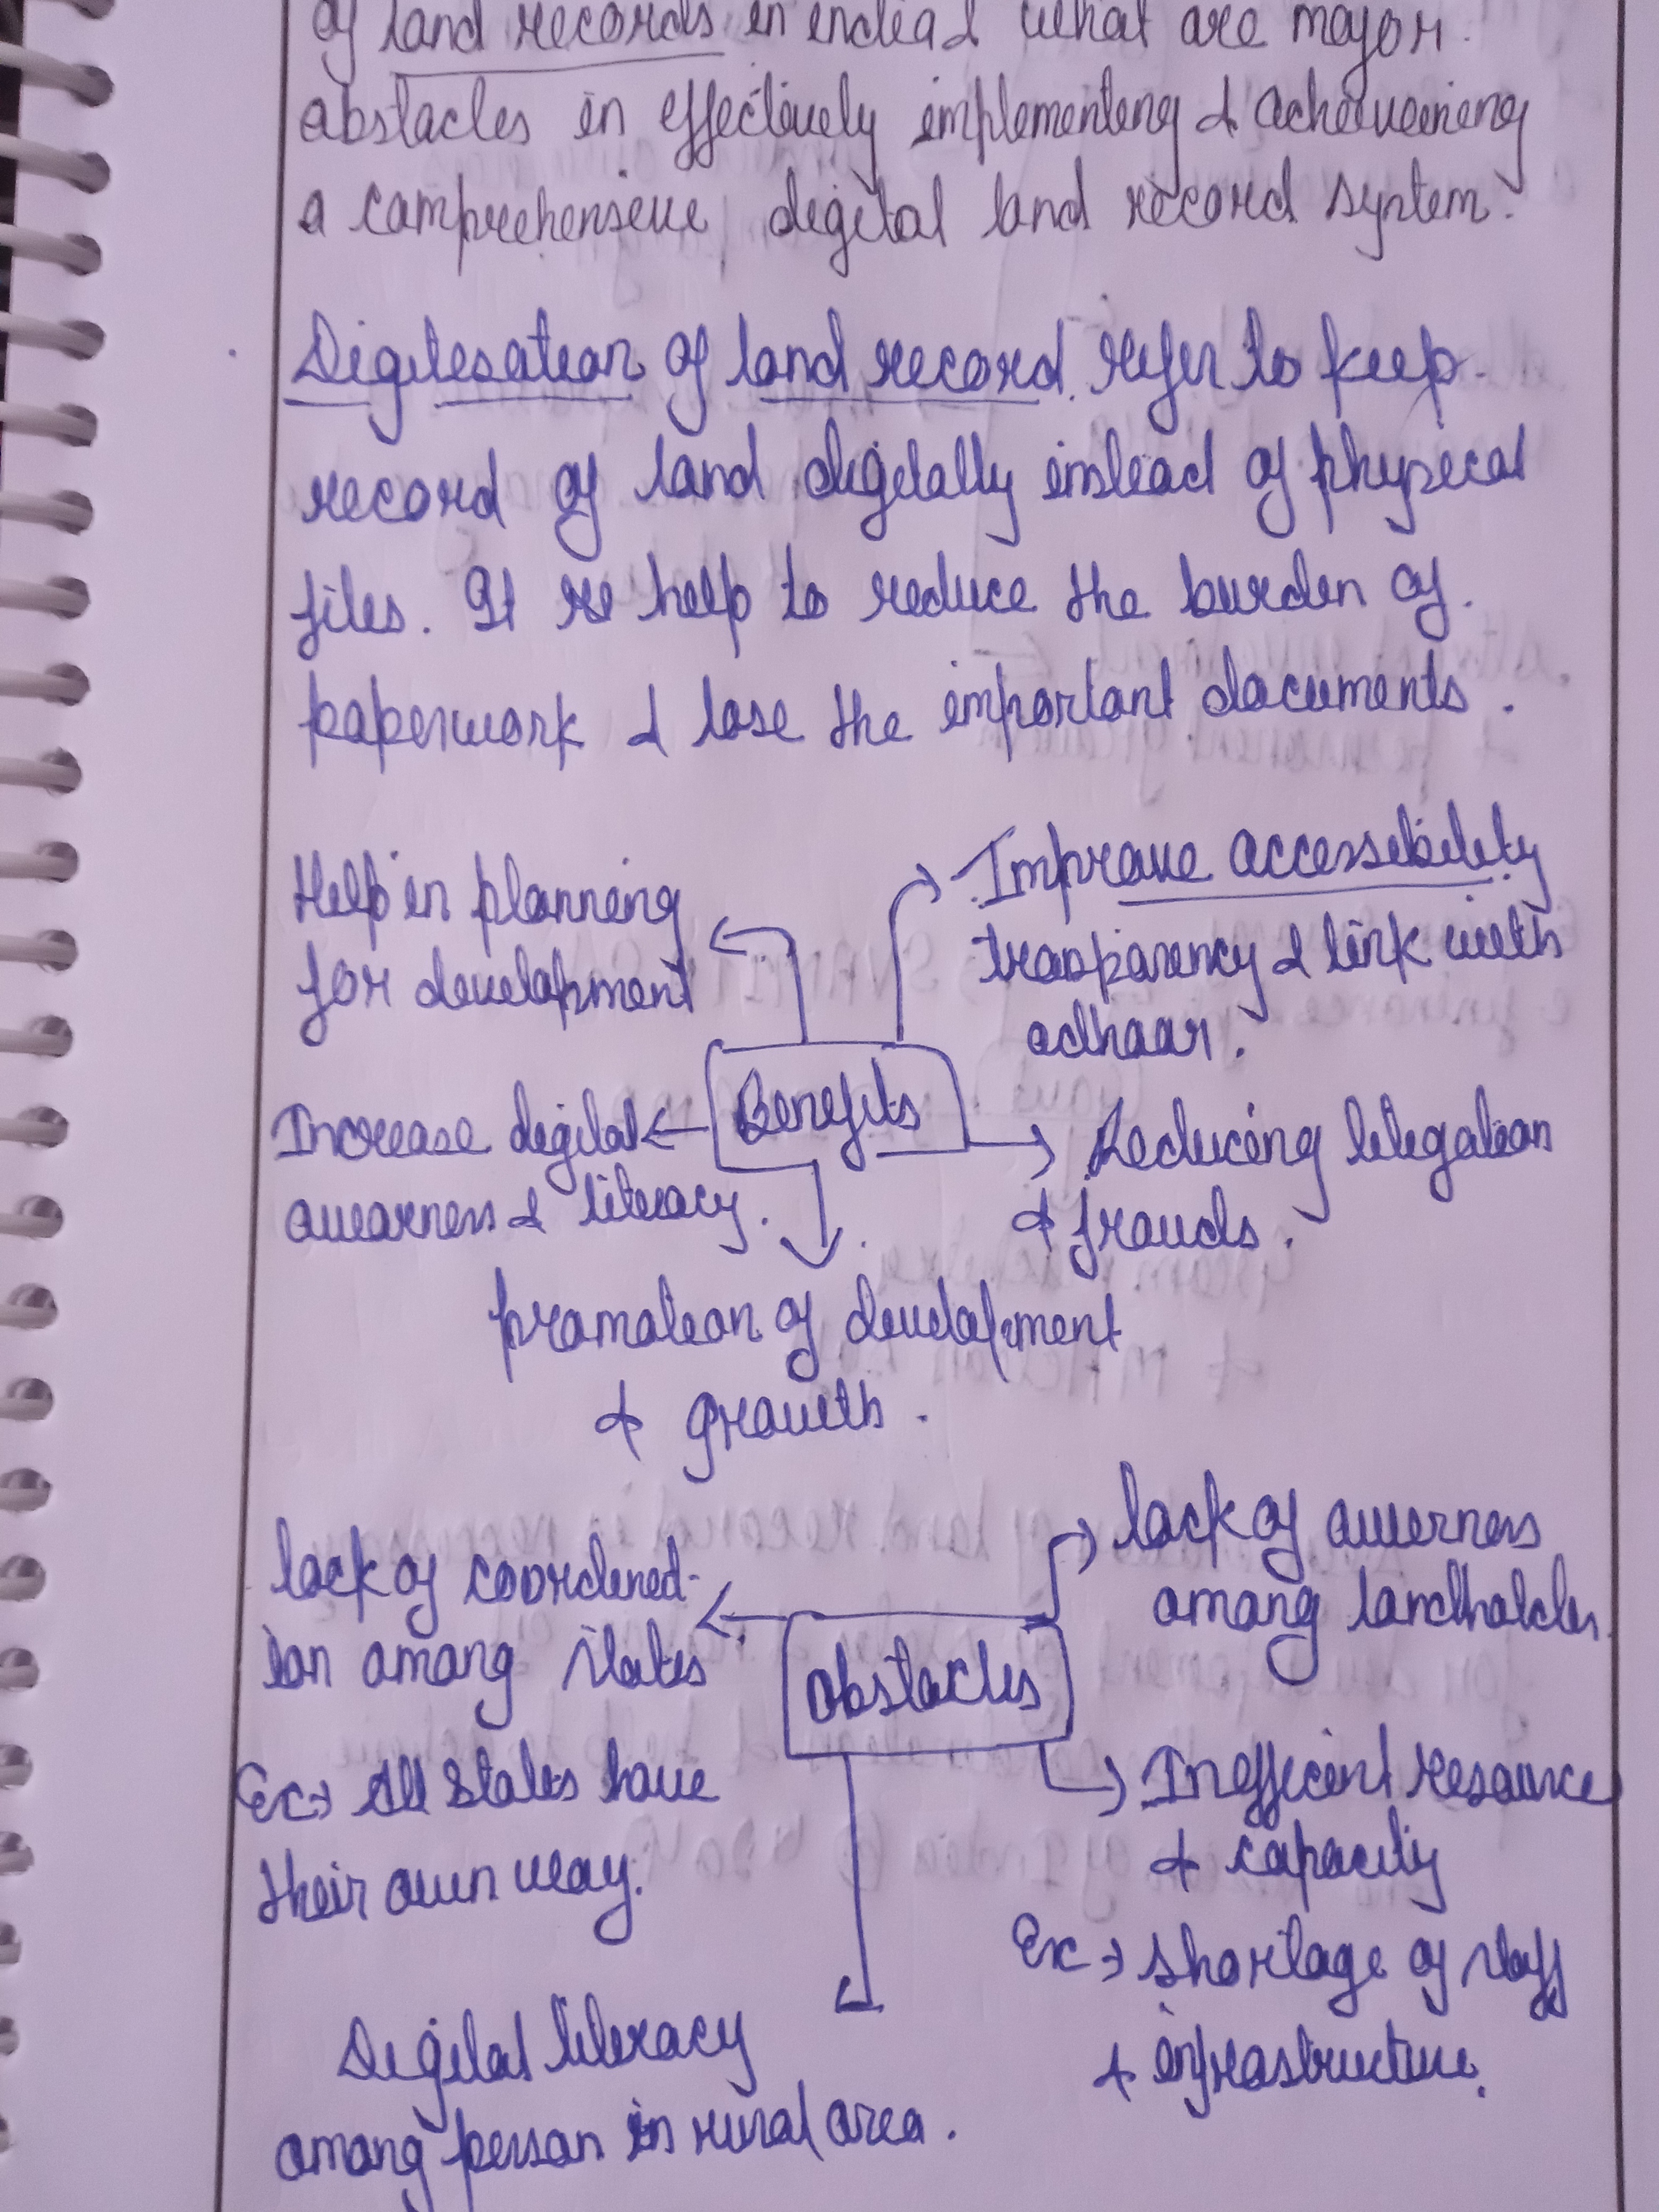 of land records in india & what are major
obstacles in effectively implementing & acheiveining
a comprehensive digital land record system.
Digitisation of land record refer to keep
record of land digitally instead of physical
files. It re help to reduce the burden of
paperwork & lose the important documents.
Help in planning
for development
Improve accessibility
transparency & link with
adhaar.
Benefits
Increase digital
awarness & literacy.
Reducing litigation
& frauds.
promotion of development
& growth.
lack of coordined-
ion among states
Ex→ All States have
their own way.
obstacles
lack of awerness
among landholder.
Inefficent resource
& capacity
Ex→ shortage of staff
& infrastructure.
Digital literacy
among person in rural area.